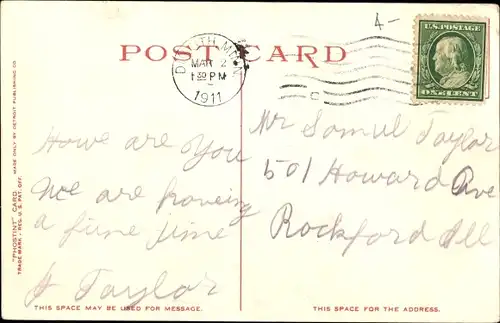 POST CARD
A-
DULUTH, MINN.
MAR 2
1 30 PM
1911
C
U.S. POSTAGE
ONE CENT
"PHOSTINT" CARD MADE ONLY BY DETROIT PUBLISHING CO.
TRADE MARK. REG. U.S. PAT. OFF.
Howe are You
We are haveing
a fine time
J Taylor
THIS SPACE MAY BE USED FOR MESSAGE.
Mr Samuel Taylor
501 Howard Ave
Rockford Ill
THIS SPACE FOR THE ADDRESS.